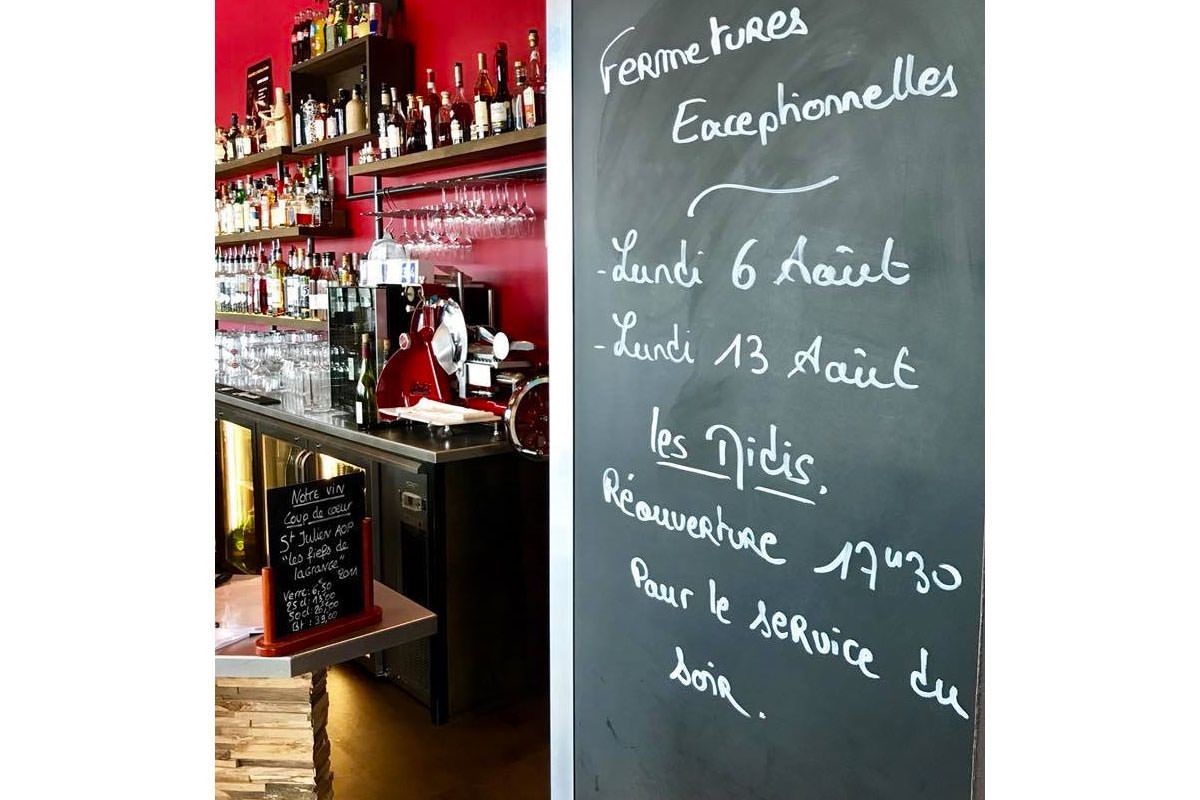 Fermetures
Exceptionnelles
- Lundi 6 Août
- Lundi 13 Août
les Midis.
Réouverture 17h30
Pour le service du
soir.
Notre vin
Coup de cœur
St Julien AOP
"Les fiefs de
lagrange"
2011
Verre: 6,50
25cl: 13,00
50cl: 26,00
Bt: 39,00